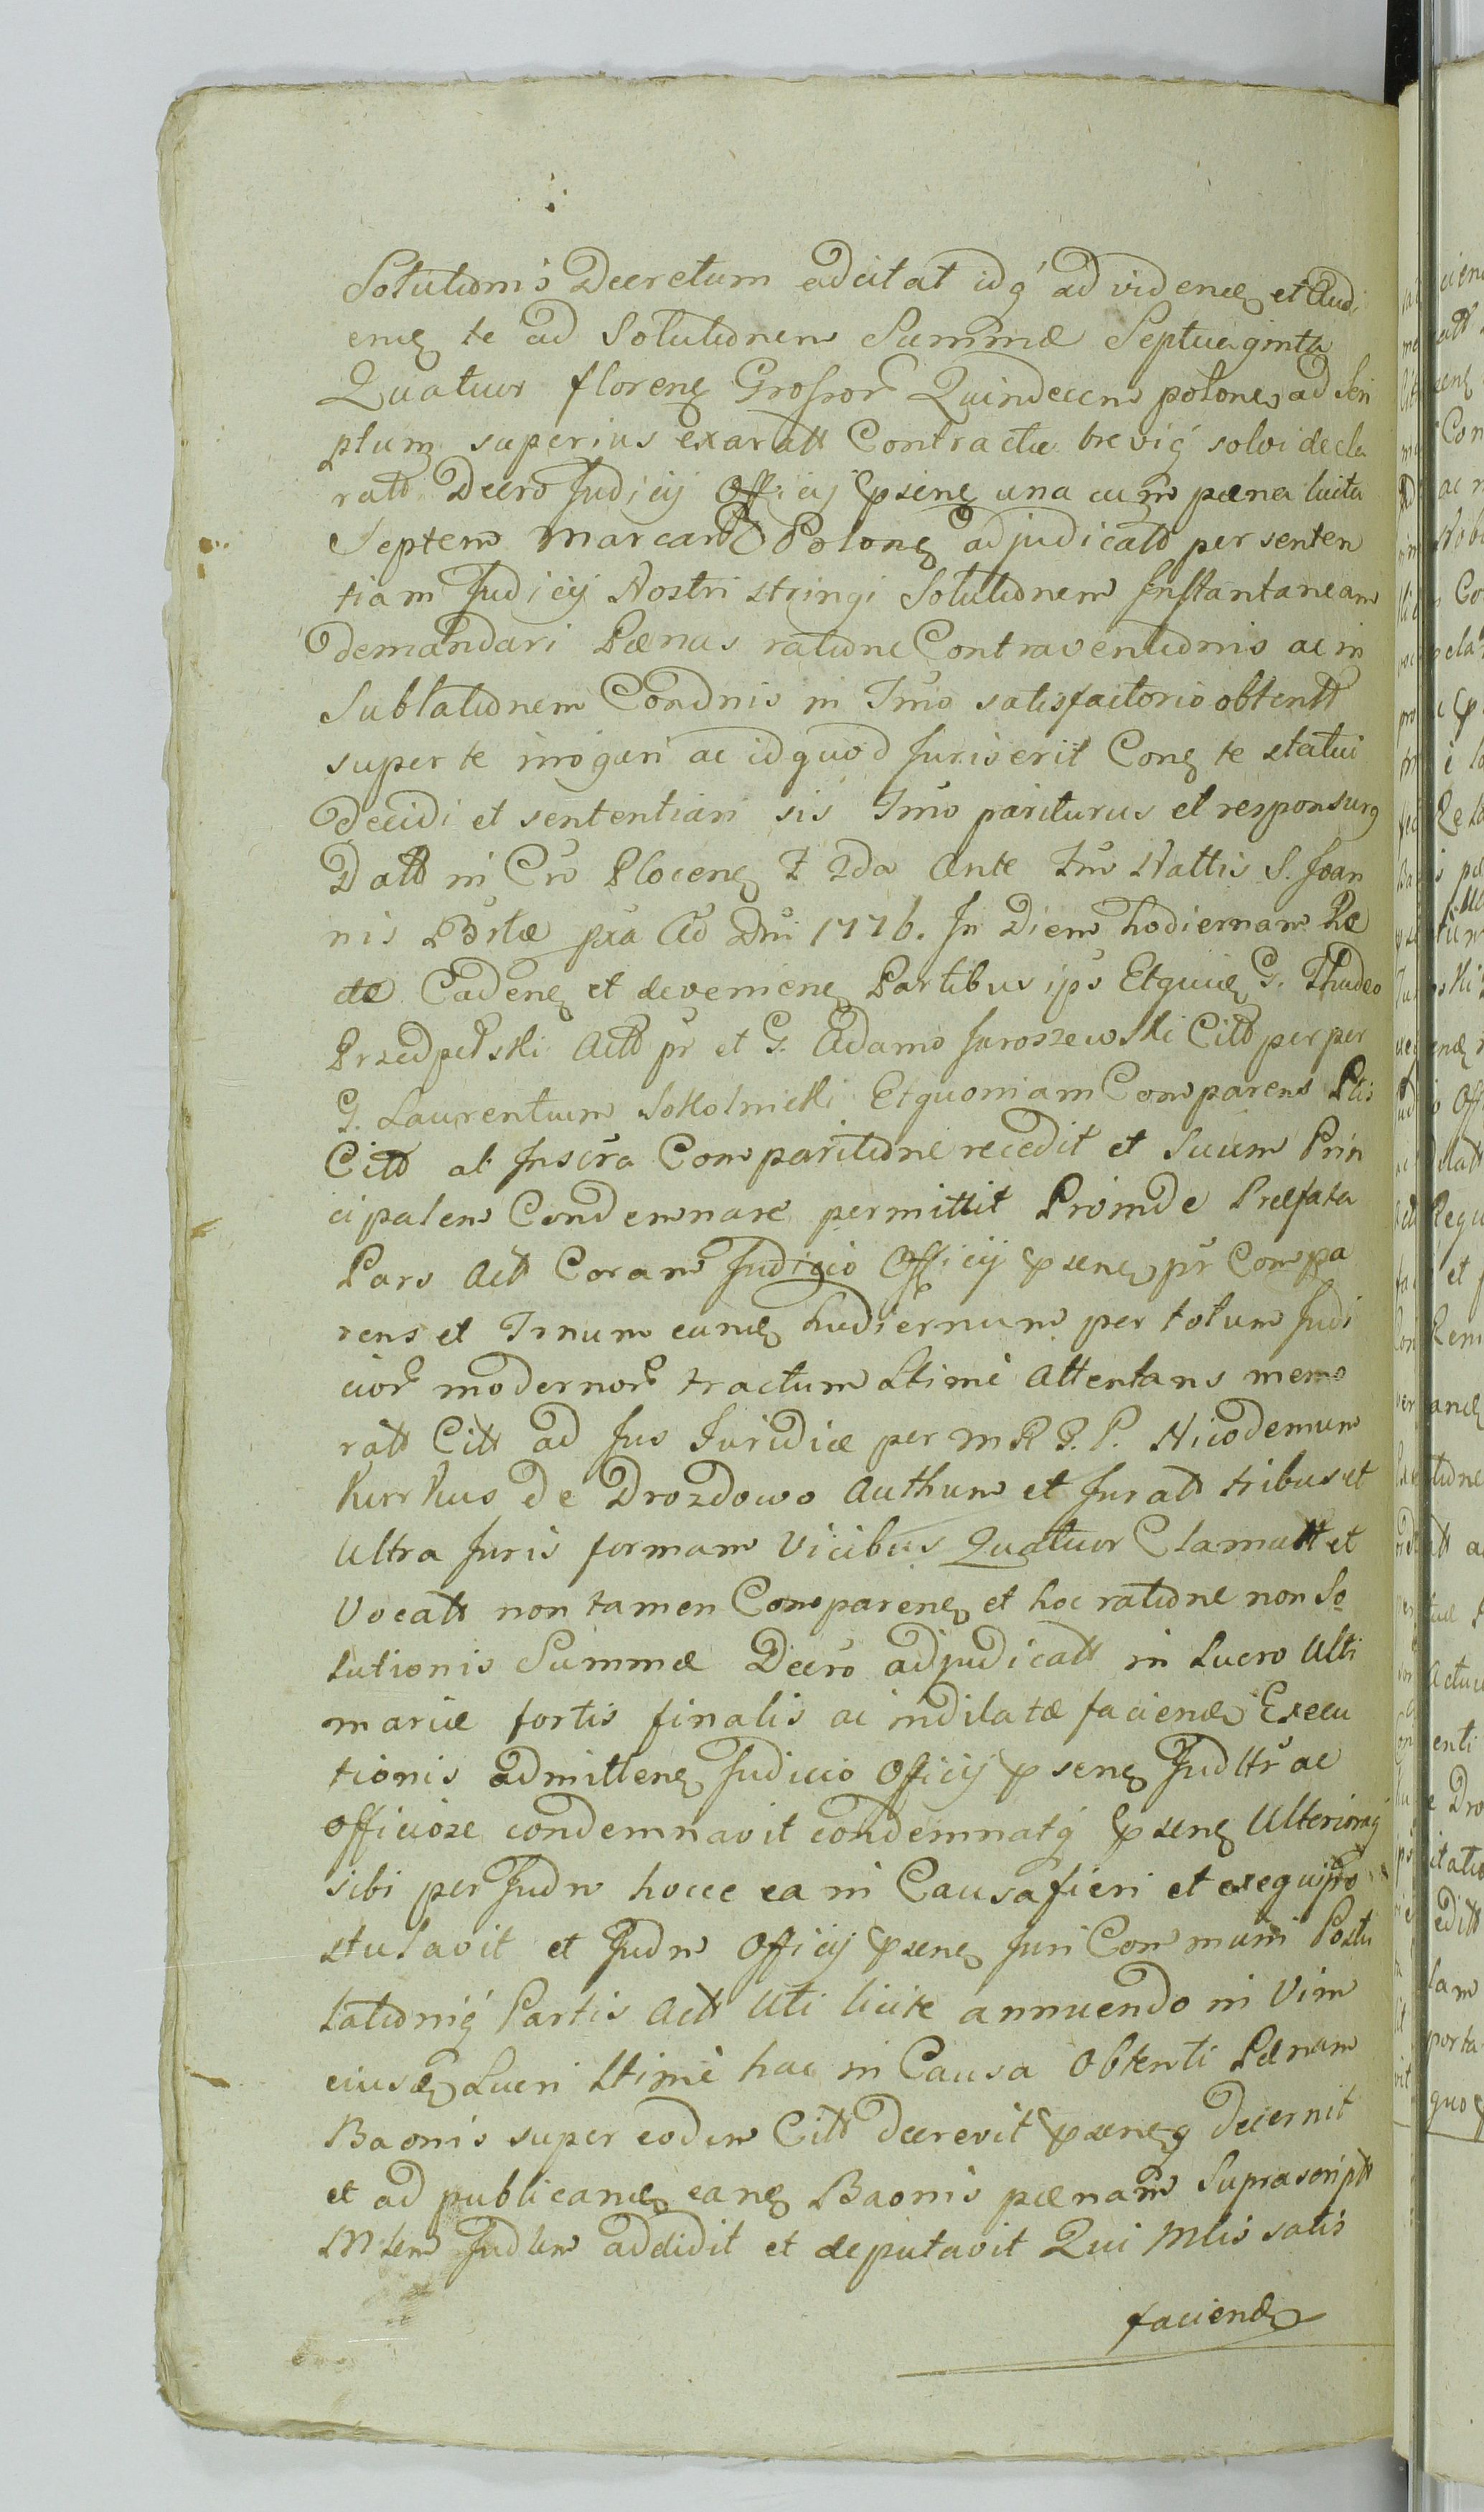 Solutionis Decretum adcitat idq ad videnɖ et Audi
enɖ te ad Solutionem Summæ Septuaginta
Quatuor florenɖ Grossor Quindecem polonɖ ad Scri
ptum superius exaratt Contractu brevig solvi decla
ratt Decro Judicij Officij psenɖ una cum pæna luita
Septem Marcar Polonɖ adjudicatt per senten
tiam Judicij Nostri stringi Solutionem Instantaneam
demandari Pænas ratione Contraventionis ac in
Sublationem Condnis in Tmo satisfactorio obtentt
super te irrogari ac id quod Juris erit Conɖ te statui
Decidi et sententiari sis Tmo pariturus et responsurg
Datt in Cu Plocenɖ F 2da Ante Fm Nattis S. Joan
nis Bstæ pxa Ad Dni 1776. In Diem hodiernam Re
cte Cadenɖ et devenienɖ Partibus ips Etquiɖ G. Thadeo
Przedpełski Actt pr et G. Adamo Jaroszewski Citt per per
G. Laurentium Sokolnicki Etquoniam Comparens Ptis
Citt ab Inscra Comparitione recedit et Suum Prin
cipalem Condemnare permittit Proinde Præfata
Pars Actt Coram Judicio Officij psenɖ pr Compa
rens et Trnum eunɖ hudiernum per totum Judi
cior modernor tractum Ltime Attentans memo
ratt Citt ad Jus Juridice per M R P. P. Nicodemum
Kurkus de Drozdowo Authum et Juratt tribus et
Ultra Juris formam Vicibus Quatuor Clamatt et
Vocatt non tamen Comparenɖ et hoc ratione non So
lutionis Summæ Decro adjudicatt in Lucro Ulti
mariæ fortis finalis ac indilatæ facienɖ Execu
tionis admittenɖ Judicio Officij psenɖ Judltr ac
officiose condemnavit condemnatq psenɖ Ulteriorag
sibi per Judm hocce ea in Causa fieri et exequi po
stulavit et Judm Officij psenɖ Juri Communi Postu
lationig Partis Actt Uti licite annuendo in Vim
eiusɖ Lucri Ltime hac in Causa Obtenti Pænam
Baonis super eodem Citt decrevit psenɖq decernit
et ad publicanɖ eanɖ Baonis pænam Suprascriptt
Mlem Judlem addidit et deputavit Qui Mlis satis
facienɖ